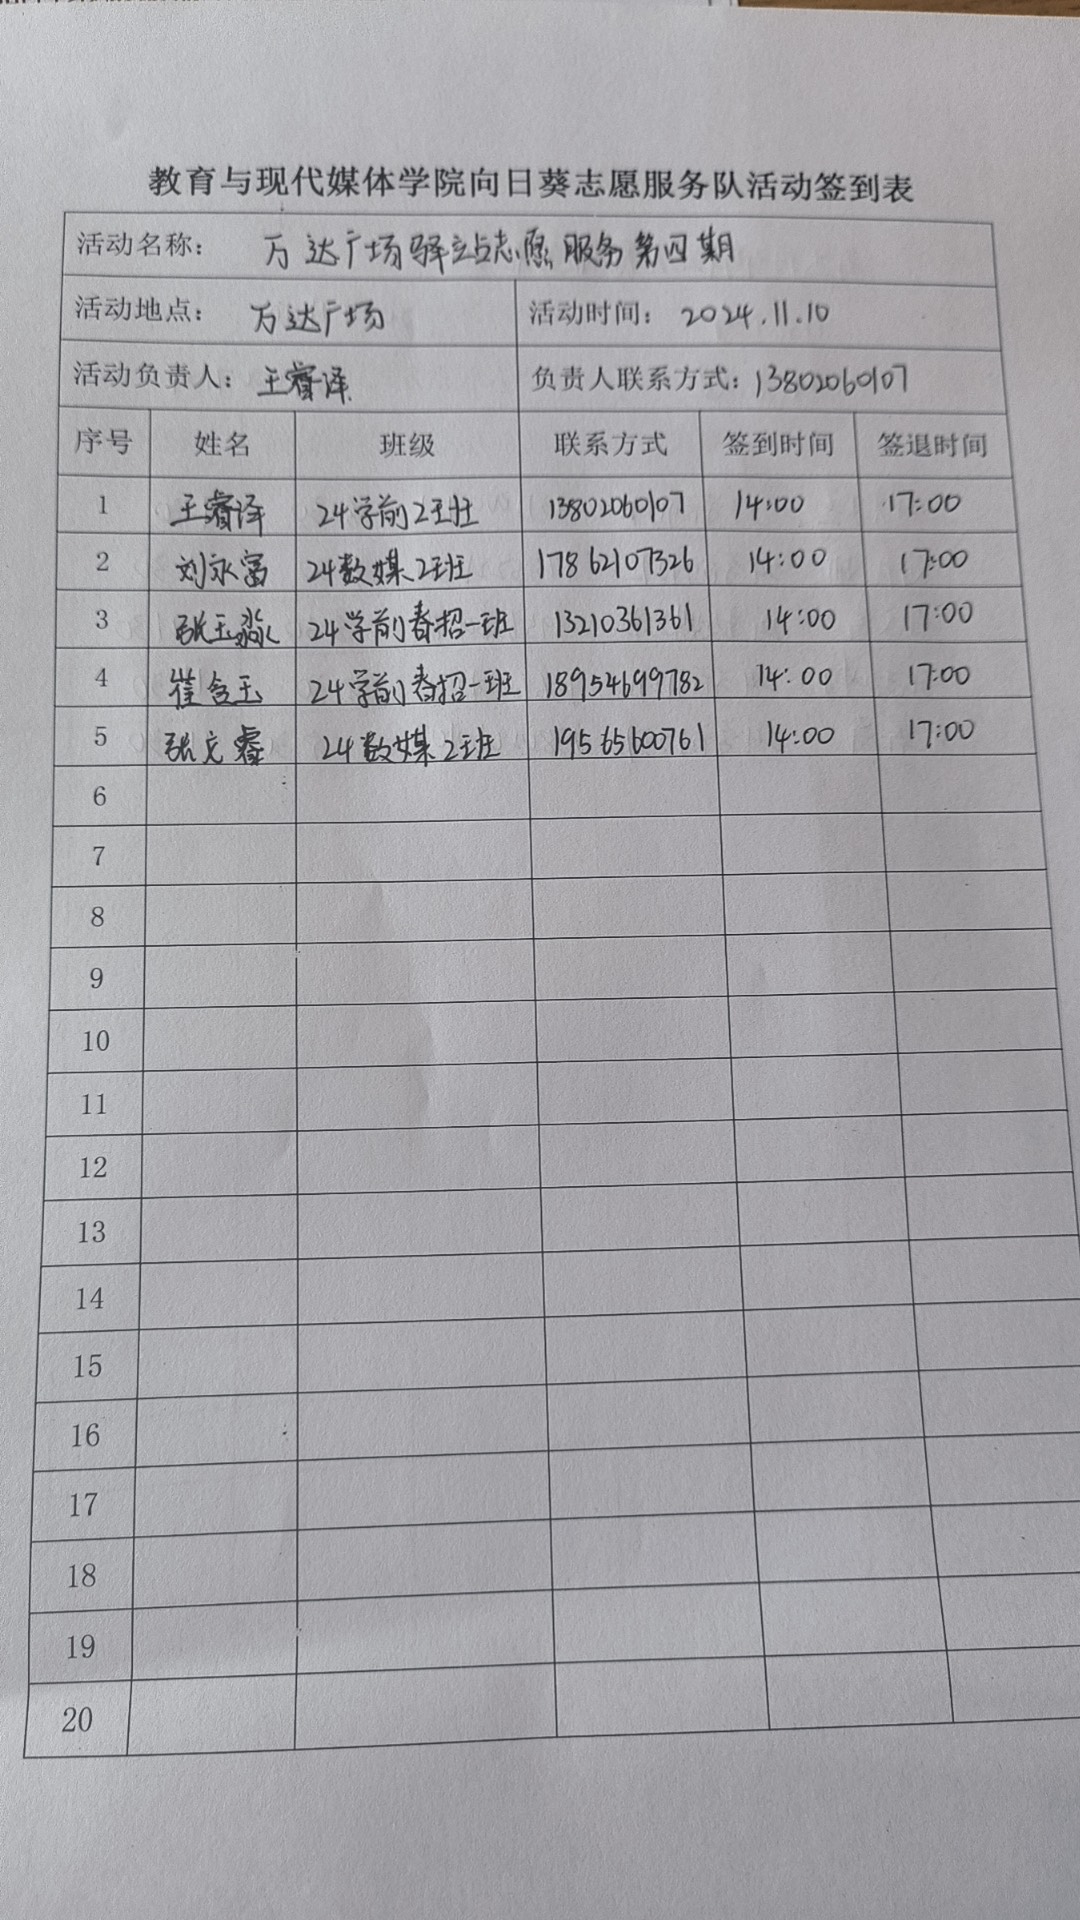 教育与现代媒体学院向日葵志愿服务队活动签到表
活动名称： 万达广场驿站志愿服务第四期
活动地点： 万达广场 活动时间： 2024.11.10
活动负责人： 王睿泽 负责人联系方式：13802060107
序号 姓名 班级 联系方式 签到时间 签退时间
1 王睿泽 24学前2班 13802060107 14:00 17:00
2 刘永富 24数媒2班 17862107326 14:00 17:00
3 张玉淼 24学前春招一班 13210361361 14:00 17:00
4 崔含玉 24学前春招一班 18954699782 14:00 17:00
5 张文睿 24数媒2班 19565600761 14:00 17:00
6
7
8
9
10
11
12
13
14
15
16
17
18
19
20